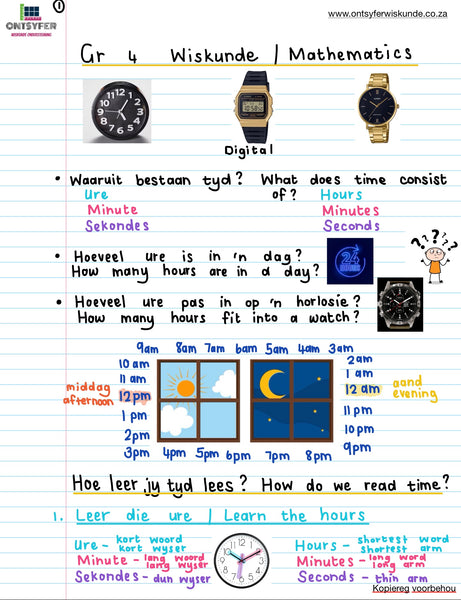 ①
ONTSYFER
WISKUNDE ONDERSTEUNING
www.ontsyferwiskunde.co.za
Gr 4 Wiskunde | Mathematics
Digital
• Waaruit bestaan tyd? What does time consist of?
Ure Hours
Minute Minutes
Sekondes Seconds
• Hoeveel ure is in 'n dag?
How many hours are in a day?
24
HOURS
? ? ? ? ?
• Hoeveel ure pas in op 'n horlosie?
How many hours fit into a watch?
9am 8am 7am 6am 5am 4am 3am
10am 2am
11am 1am
middag
afternoon
12pm 12am
aand
evening
1pm 11pm
2pm 10pm
3pm 4pm 5pm 6pm 7pm 8pm 9pm
Hoe leer jy tyd lees? How do we read time?
1. Leer die ure | Learn the hours
Ure - kort woord
kort wyser
Minute - lang woord
lang wyser
Sekondes - dun wyser
12 1 2 3 4 5 6 7 8 9 10 11
Hours - shortest word
shortest arm
Minutes - long word
long arm
Seconds - thin arm
Kopiereg voorbehou